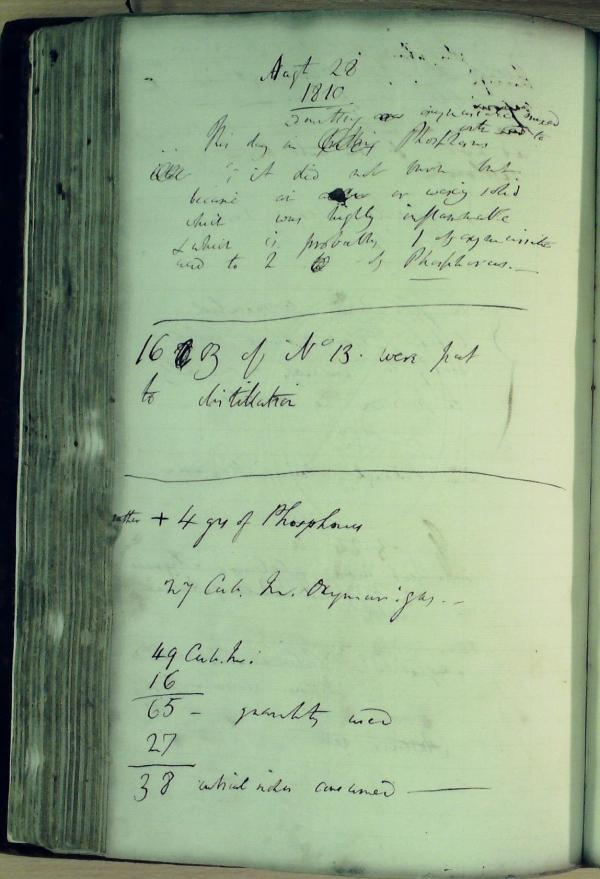 Augt 28
1810
Something oxymuriatic
This day in Phosphorus acid to
it did not burn but
became a or waxy solid
which was highly inflammable
& which is probably 1 of oxymuriatic
acid to 2 of Phosphorus. —
16 of No 13. were put
to distillation
rather + 4 grs of Phosphorus
27 Cub. In. Oxymuri: gas. —
49 Cub. In:
16
65 — quantity used
27
38 cubical inches consumed —